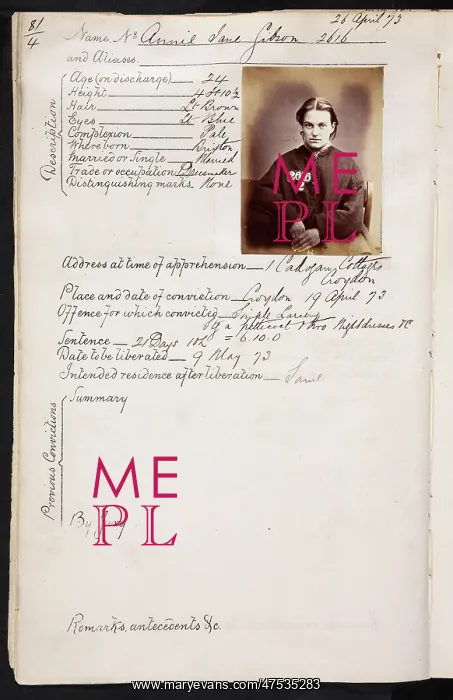 26 April 73
81/4
Name, No. Annie Jane Gibson 2616
and Aliases.
Description
Age (on discharge) 24
Height 4 ft 10½
Hair Lt Brown
Eyes Lt Blue
Complexion Pale
Where born Brixton
Married or Single Married
Trade or occupation Dressmaker
Distinguishing marks None
ME
PL
Address at time of apprehension 1 Cadogan Cottages
Croydon
Place and date of conviction Croydon 19 April 73
Offence for which convicted Simple Larceny
Sg a petticoat & two Nightdresses &c
Sentence 21 Days = 6.10.0
Date to be liberated 9 May 73
Intended residence after liberation Same
Previous Convictions
Summary
ME
PL
By Jury
Remarks, antecedents &c.
www.maryevans.com/47535283